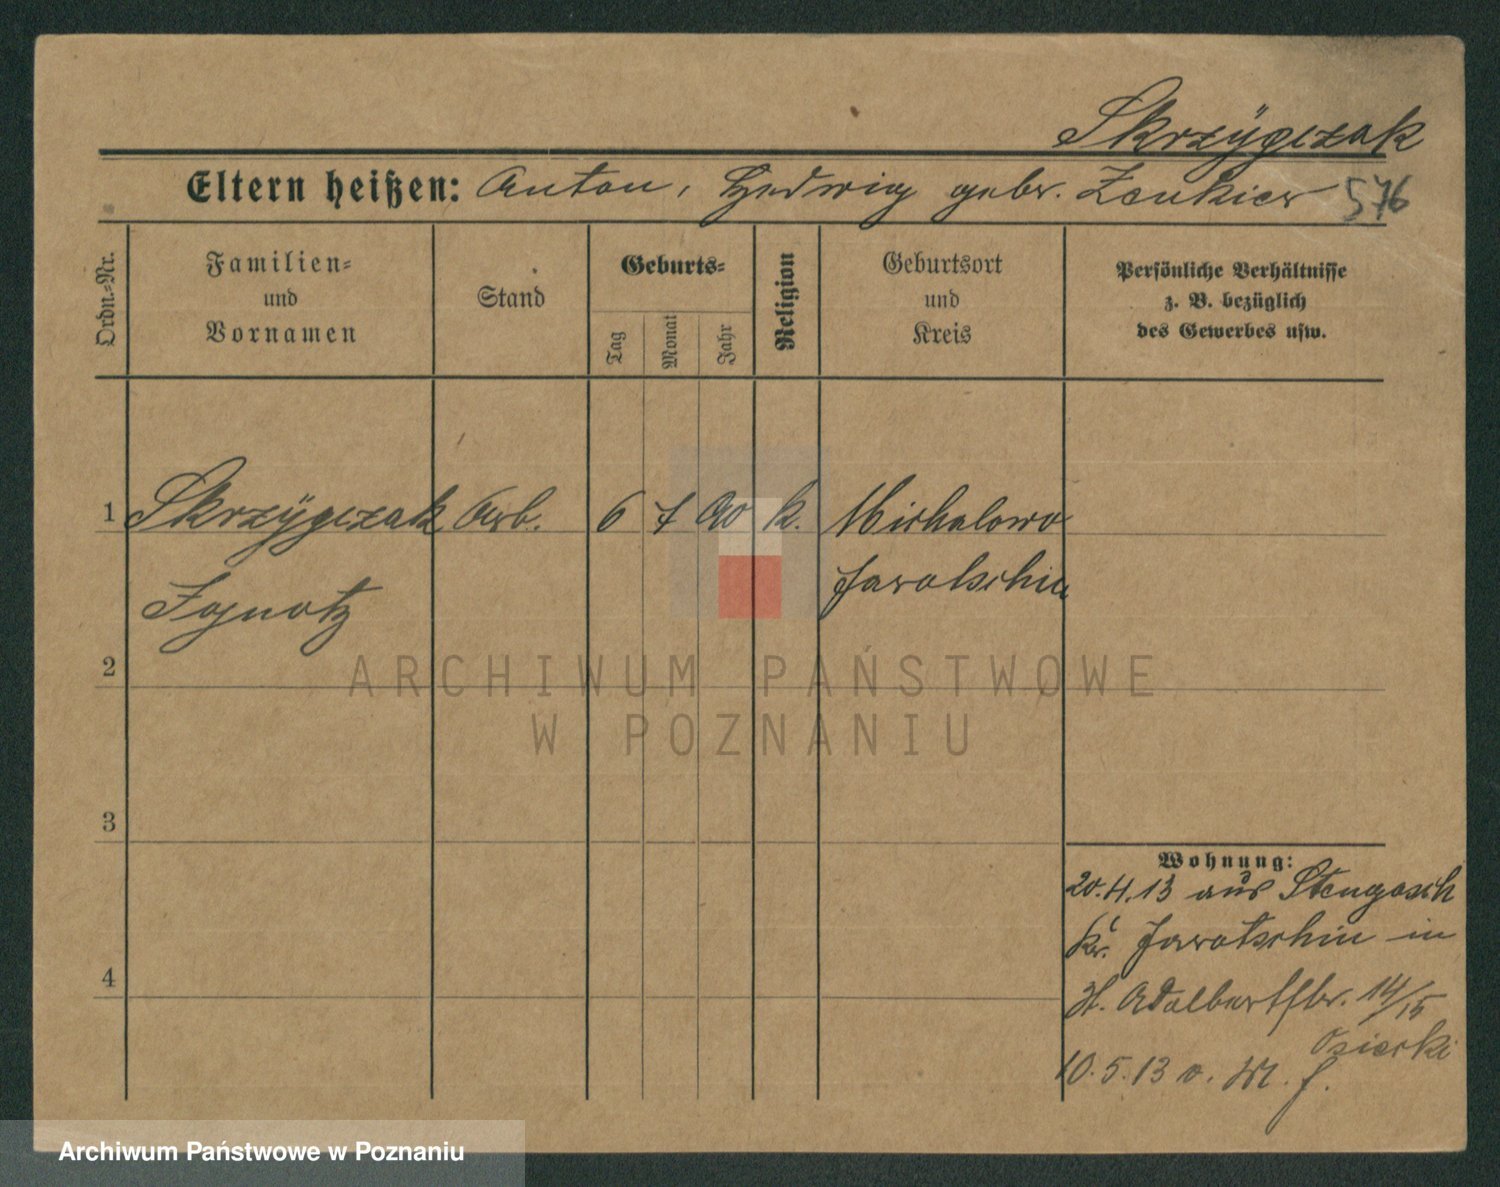 Skrzÿpczak
Eltern heißen: Anton, Hedwig gebr. Zenkier 576
Ordn.-Nr.
Familien-
und
Vornamen
Stand
Geburts-
Tag
Monat
Jahr
Religion
Geburtsort
und
Kreis
Persönliche Verhältnisse
z. B. bezüglich
des Gewerbes usw.
1 Skrzÿpczak Arb. 6 7 90 k. Michalowo
Ignatz Jarotschin
2
3
4
Wohnung:
20.4.13 aus
Kr. Jarotschin in
St. Adalbertstr. 14/15
Osierki
10.5.13 v.
ARCHIWUM PAŃSTWOWE
W POZNANIU
Archiwum Państwowe w Poznaniu